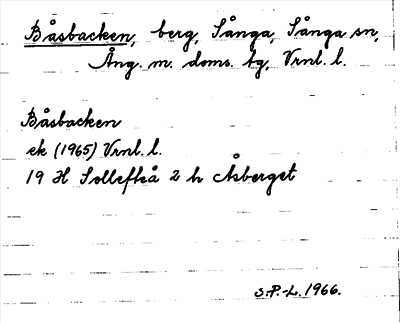 Båsbacken, berg, Sånga, Sånga sn,
Ång. m. doms. tg, Vrnl. l.
Båsbacken
ek (1965) Vrnl. l.
19 H Sollefteå 2 h Åsberget
S.P.-L. 1966.